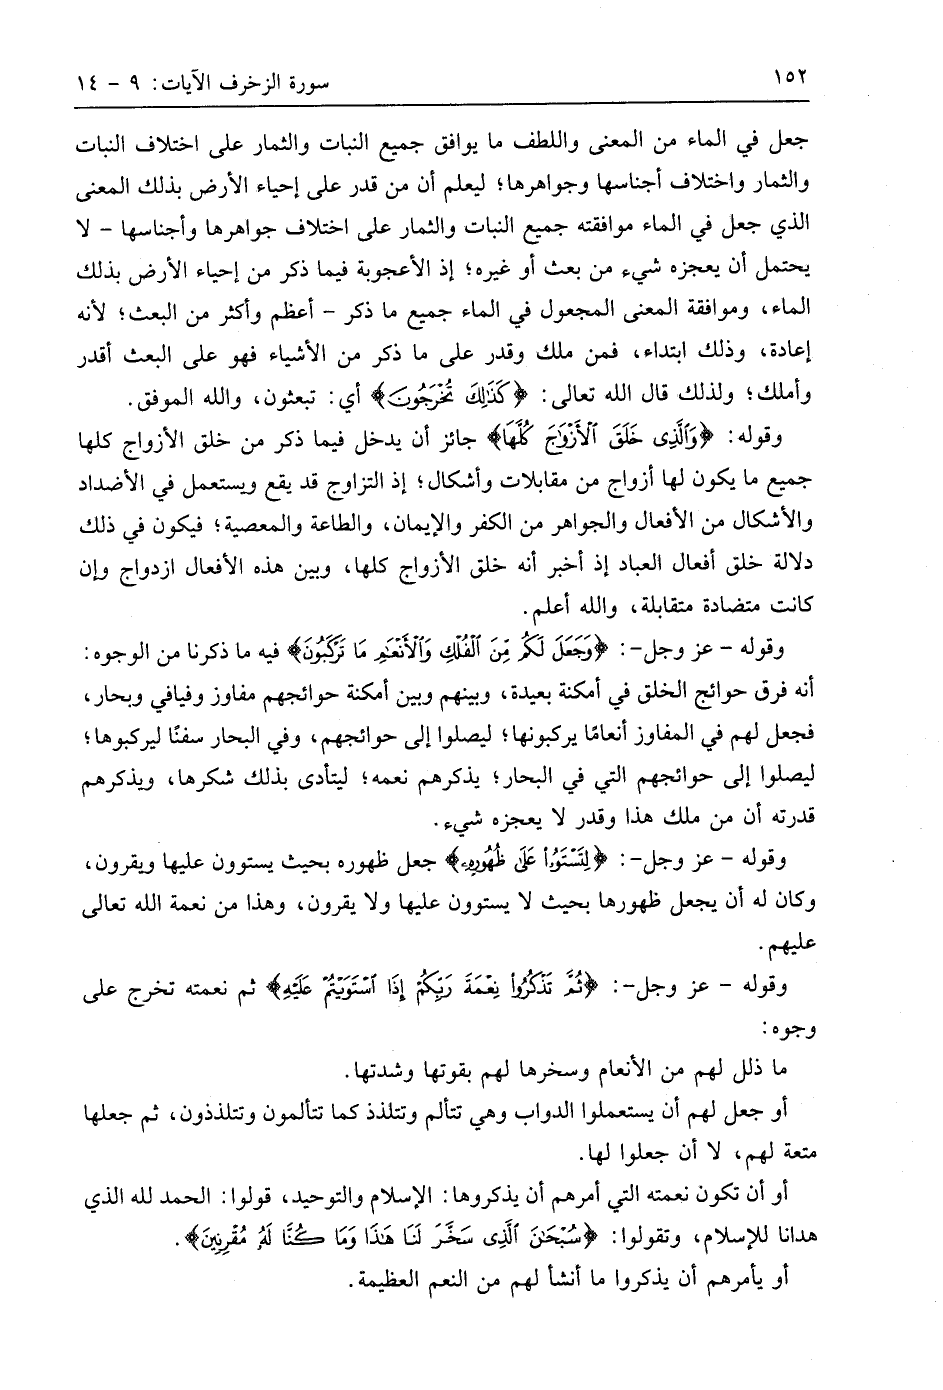 ١٥٢
سورة الزخرف الآيات: ٩ - ١٤
جعل في الماء من المعنى واللطف ما يوافق جميع النبات والثمار على اختلاف النبات
والثمار واختلاف أجناسها وجواهرها؛ ليعلم أن من قدر على إحياء الأرض بذلك المعنى
الذي جعل في الماء موافقته جميع النبات والثمار على اختلاف جواهرها وأجناسها - لا
يحتمل أن يعجزه شيء من بعث أو غيره؛ إذ الأعجوبة فيما ذكر من إحياء الأرض بذلك
الماء، وموافقة المعنى المجعول في الماء جميع ما ذكر - أعظم وأكثر من البعث؛ لأنه
إعادة، وذلك ابتداء، فمن ملك وقدر على ما ذكر من الأشياء فهو على البعث أقدر
وأملك؛ ولذلك قال الله تعالى: ﴿كَذَٰلِكَ تُخْرَجُونَ﴾ أي: تبعثون، والله الموفق.
وقوله: ﴿وَٱلَّذِى خَلَقَ ٱلْأَزْوَٰجَ كُلَّهَا﴾ جائز أن يدخل فيما ذكر من خلق الأزواج كلها
جميع ما يكون لها أزواج من مقابلات وأشكال؛ إذ التزاوج قد يقع ويستعمل في الأضداد
والأشكال من الأفعال والجواهر من الكفر والإيمان، والطاعة والمعصية؛ فيكون في ذلك
دلالة خلق أفعال العباد إذ أخبر أنه خلق الأزواج كلها، وبين هذه الأفعال ازدواج وإن
كانت متضادة متقابلة، والله أعلم.
وقوله - عز وجل-: ﴿وَجَعَلَ لَكُم مِّنَ ٱلْفُلْكِ وَٱلْأَنْعَٰمِ مَا تَرْكَبُونَ﴾ فيه ما ذكرنا من الوجوه:
أنه فرق حوائج الخلق في أمكنة بعيدة، وبينهم وبين أمكنة حوائجهم مفاوز وفيافي وبحار،
فجعل لهم في المفاوز أنعامًا يركبونها؛ ليصلوا إلى حوائجهم، وفي البحار سفنًا ليركبوها؛
ليصلوا إلى حوائجهم التي في البحار؛ يذكرهم نعمه؛ ليتأدى بذلك شكرها، ويذكرهم
قدرته أن من ملك هذا وقدر لا يعجزه شيء.
وقوله - عز وجل-: ﴿لِتَسْتَوُۥا۟ عَلَىٰ ظُهُورِهِۦ﴾ جعل ظهوره بحيث يستوون عليها ويقرون،
وكان له أن يجعل ظهورها بحيث لا يستوون عليها ولا يقرون، وهذا من نعمة الله تعالى
عليهم.
وقوله - عز وجل-: ﴿ثُمَّ تَذْكُرُوا۟ نِعْمَةَ رَبِّكُمْ إِذَا ٱسْتَوَيْتُمْ عَلَيْهِ﴾ ثم نعمته تخرج على
وجوه:
ما ذلل لهم من الأنعام وسخرها لهم بقوتها وشدتها.
أو جعل لهم أن يستعملوا الدواب وهي تتألم وتتلذذ كما تتألمون وتتلذذون، ثم جعلها
متعة لهم، لا أن جعلوا لها.
أو أن تكون نعمته التي أمرهم أن يذكروها: الإسلام والتوحيد، قولوا: الحمد لله الذي
هدانا للإسلام، وتقولوا: ﴿سُبْحَٰنَ ٱلَّذِى سَخَّرَ لَنَا هَٰذَا وَمَا كُنَّا لَهُۥ مُقْرِنِينَ﴾.
أو يأمرهم أن يذكروا ما أنشأ لهم من النعم العظيمة.